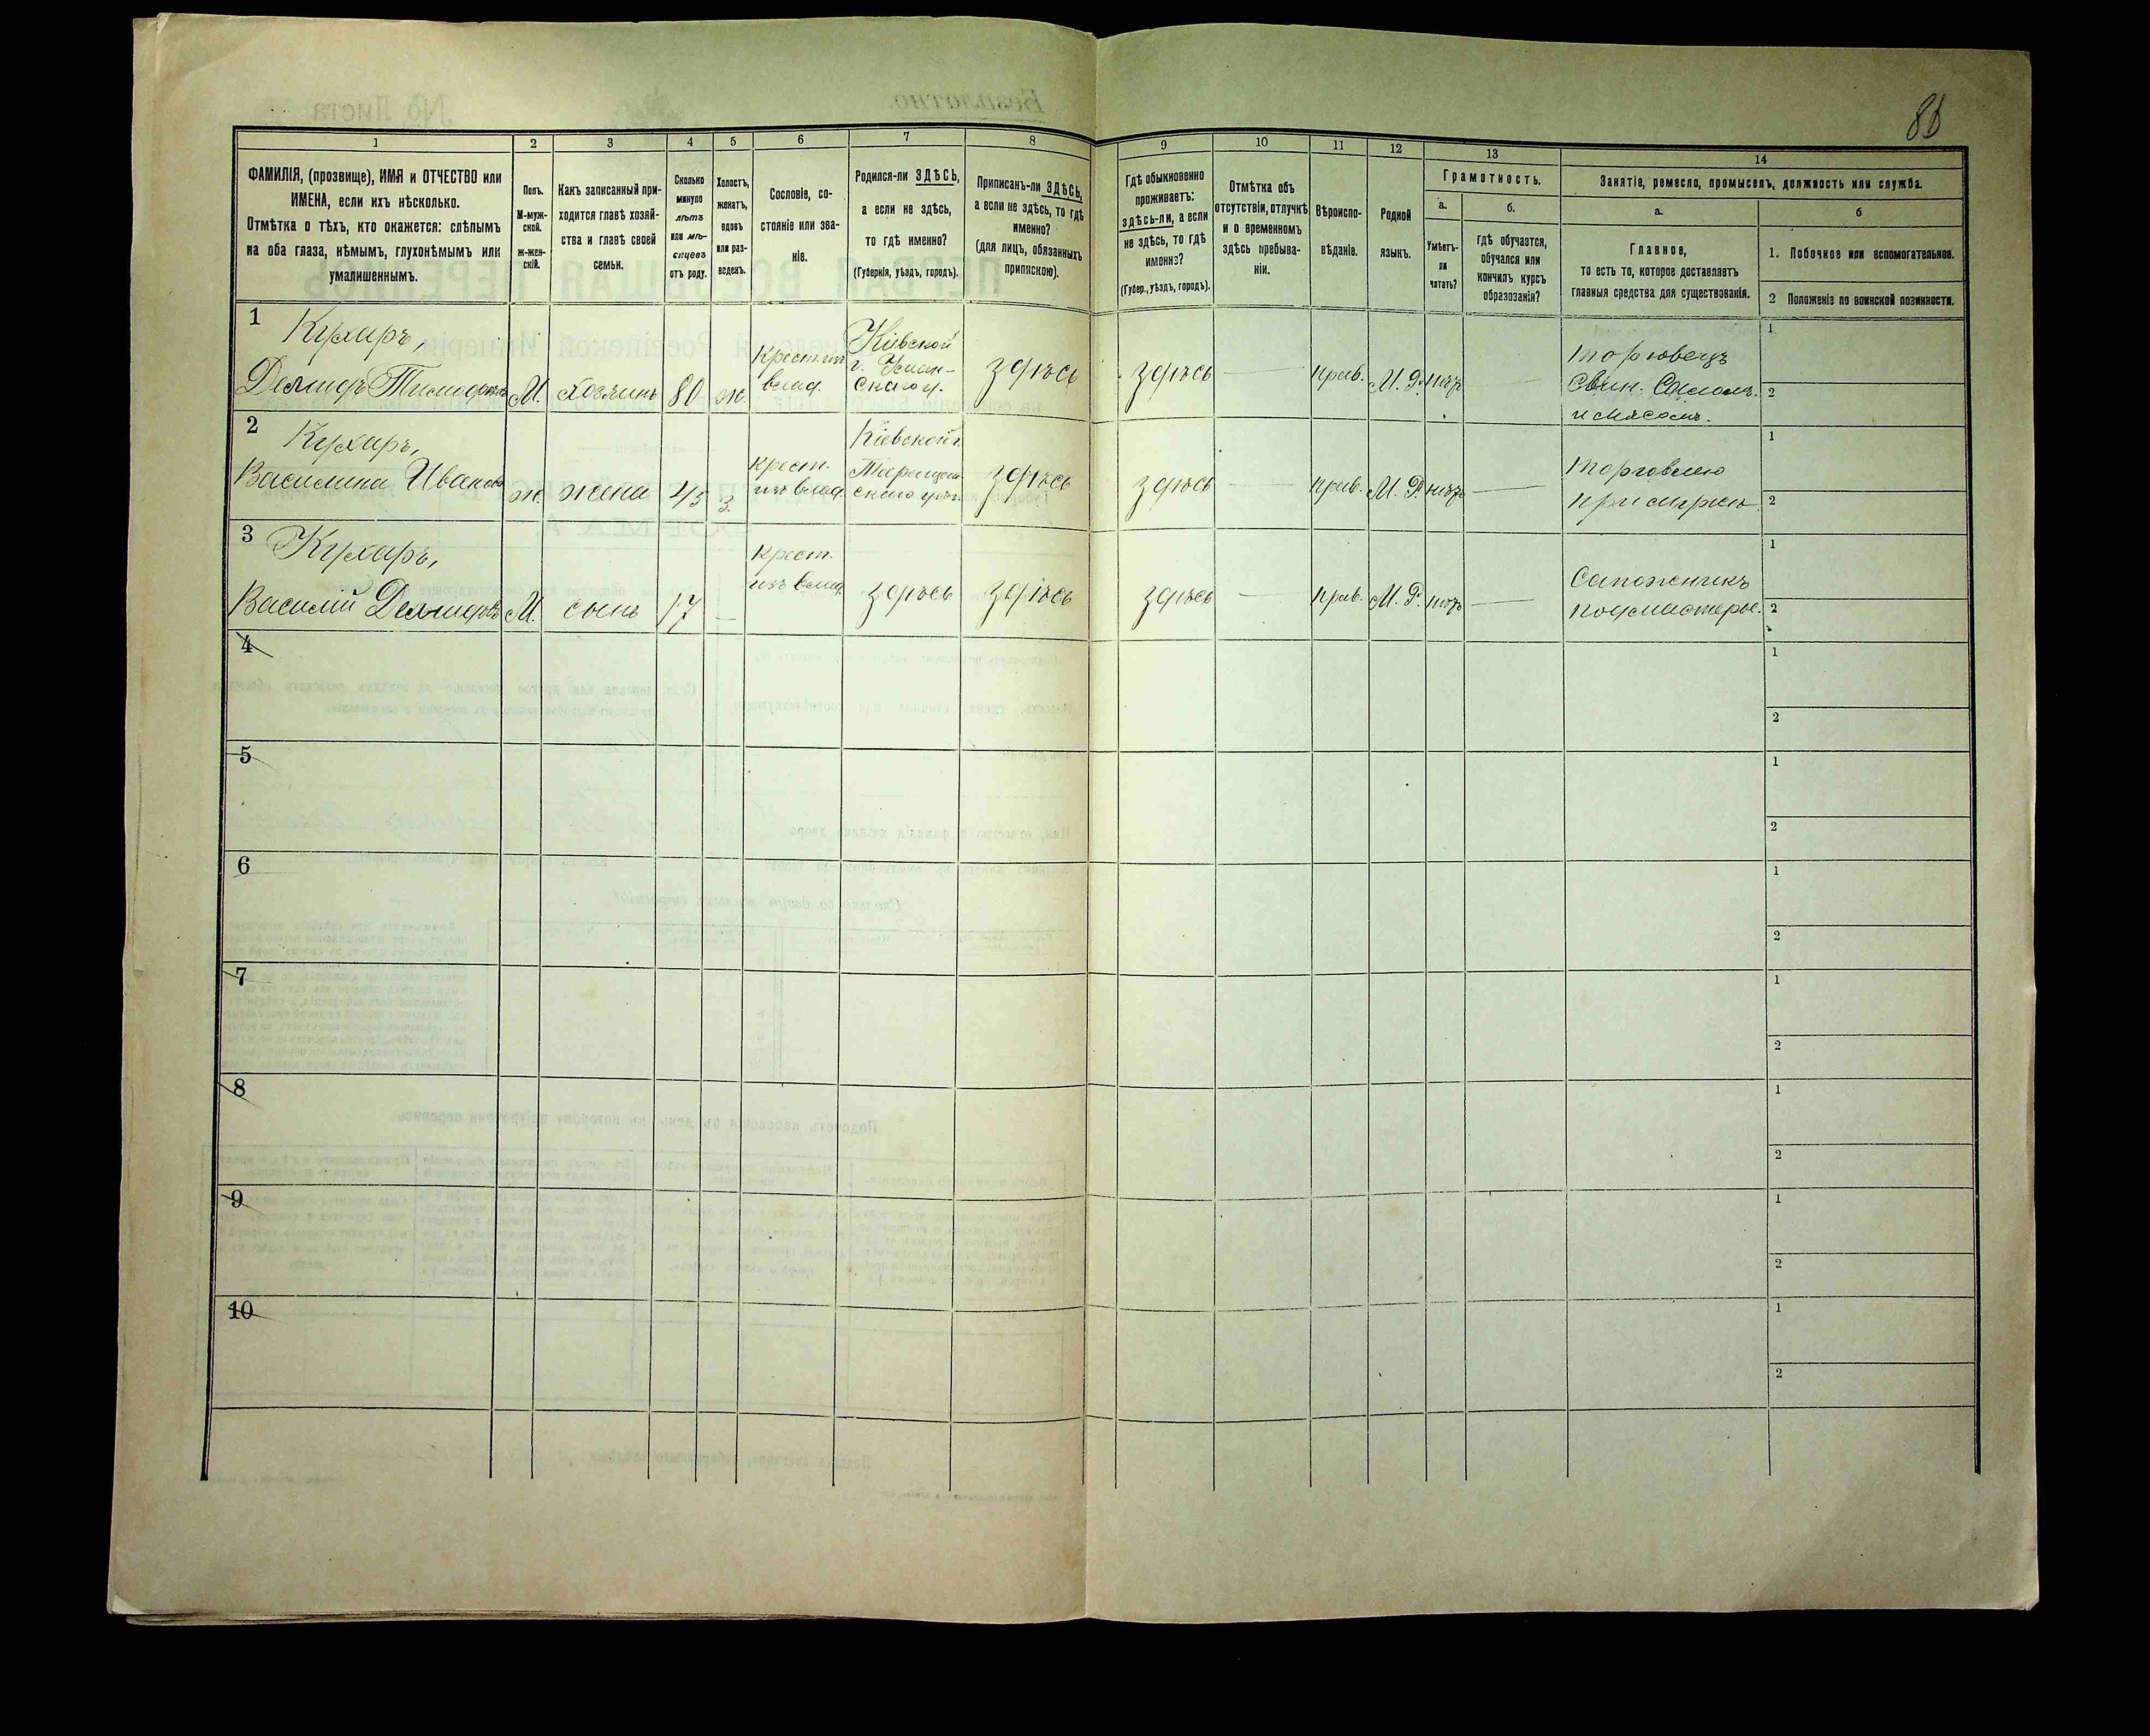 86
1
2
3
4
5
6
7
8
9
10
11
12
13
14
ФАМИЛІЯ, (прозвище), ИМЯ и ОТЧЕСТВО или
ИМЕНА, если ихъ нѣсколько.
Отмѣтка о тѣхъ, кто окажется: слѣпымъ
на оба глаза, нѣмымъ, глухонѣмымъ или
умалишеннымъ.
Полъ.
М-муж-
ской.
Ж-жен-
скій.
Какъ записанный при-
ходится главѣ хозяй-
ства и главѣ своей
семьи.
Сколько
минуло
лѣтъ
или мѣ-
сяцевъ
отъ роду.
Холостъ,
женатъ,
вдовъ
или раз-
веденъ.
Сословіе, со-
стояніе или зва-
ніе.
Родился-ли ЗДѢСЬ,
а если не здѣсь,
то гдѣ именно?
(Губернія, уѣздъ, городъ).
Приписанъ-ли ЗДѢСЬ,
а если не здѣсь, то гдѣ
именно?
(для лицъ, обязанныхъ
припискою).
Гдѣ обыкновенно
проживаетъ:
здѣсь-ли, а если
не здѣсь, то гдѣ
именно?
(Губер., уѣздъ, городъ).
Отмѣтка объ
отсутствіи, отлучкѣ
и о временномъ
здѣсь пребыва-
ніи.
Вѣроиспо-
вѣданіе.
Родной
языкъ.
Грамотность.
а.
б.
Умѣетъ-
ли
читать?
гдѣ обучается,
обучался или
кончилъ курсъ
образованія?
Занятіе, ремесло, промыселъ, должность или служба.
а.
б
Главное,
то есть то, которое доставляетъ
главныя средства для существованія.
1. Побочное или вспомогательное.
2 Положеніе по воинской повинности.
1
Кухаръ,
Демидъ
М. хозяинъ 80 ж.
Кіевской
г. Уман-
скаго у.
здѣсь
здѣсь — прав. М. Р. нѣтъ —
торговецъ
Свин. Саломъ
и мясомъ.
1
2
2
Кухаръ,
Василина Иванова
ж. жена 45 з.
крест.
изъ влад.
Кіевской г.
скаго уѣз.
здѣсь
здѣсь — прав. М. Р. нѣтъ —
торговлею
при мужѣ
1
2
3
Кухаръ,
Василій Демидовъ
М. сынъ 17 —
крест.
изъ влад.
здѣсь здѣсь
здѣсь — прав. М. Р. нѣтъ —
Сапожникъ
подмастерье.
1
2
4
1
2
5
1
2
6
1
2
7
1
2
8
1
2
9
1
2
10
1
2